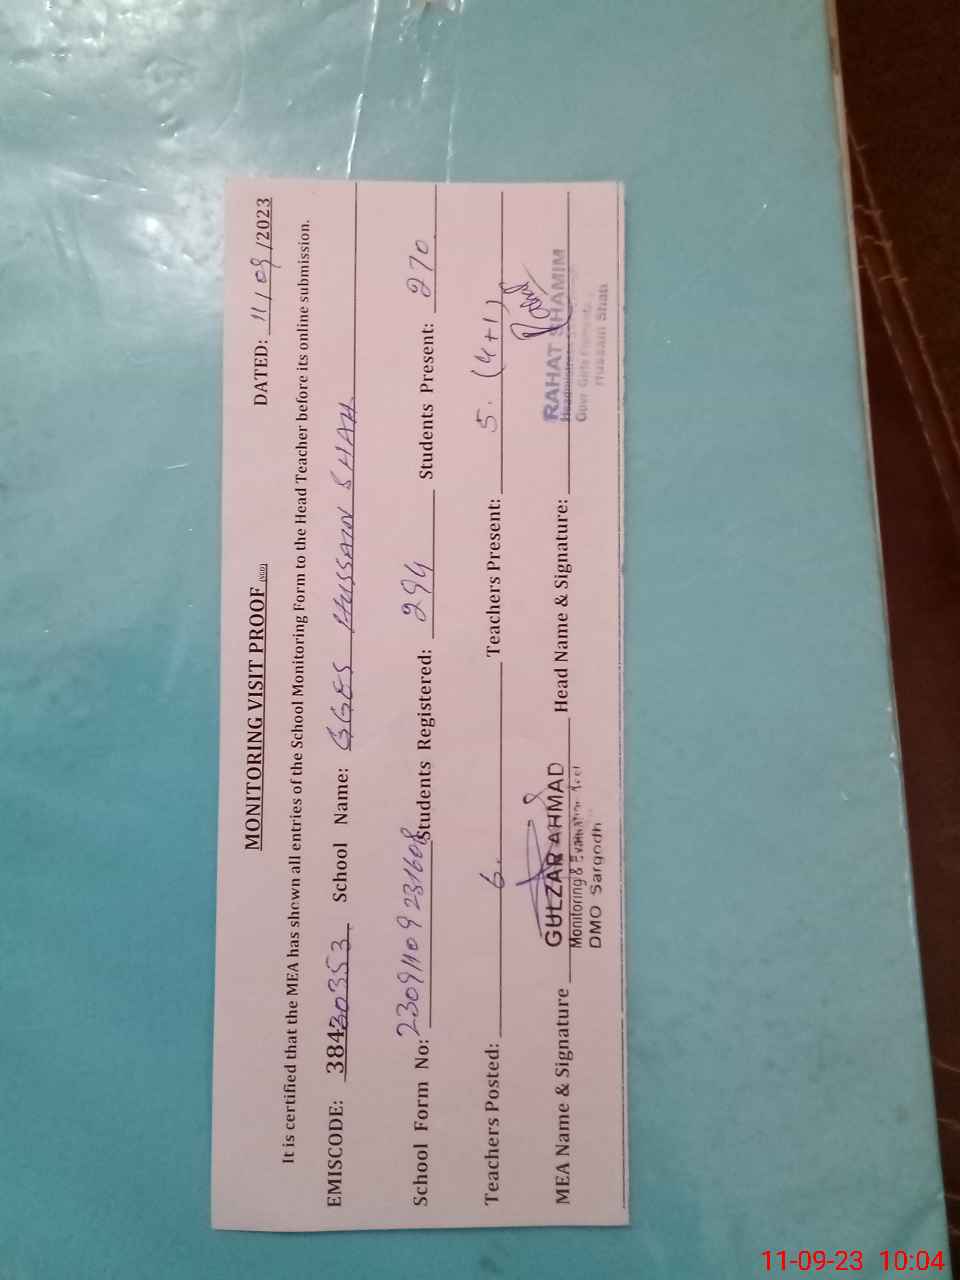 MONITORING VISIT PROOF
DATED: 11/09/2023
It is certified that the MEA has shown all entries of the School Monitoring Form to the Head Teacher before its online submission.
EMISCODE: 38430353 School Name: GGES HUSSAIN SHAH
School Form No: 23091109231608 Students Registered: 294 Students Present: 270
Teachers Posted: 6. Teachers Present: 5. (4+1)
MEA Name & Signature GULZAR AHMAD Head Name & Signature: RAHAT SHAMIM
Monitoring & Evaluation
DMO Sargodh
Govt. Girls
Hussain Shah
11-09-23 10:04